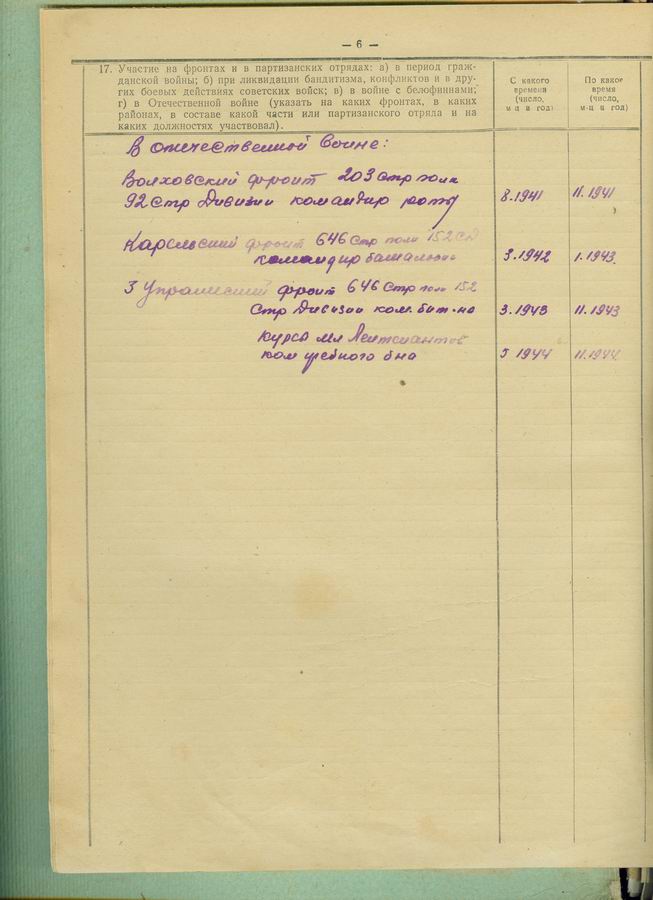 — 6 —
17. Участие на фронтах и в партизанских отрядах: а) в период граж-
данской войны; б) при ликвидации бандитизма, конфликтов и в дру-
гих боевых действиях советских войск; в) в войне с белофиннами;
г) в Отечественной войне (указать на каких фронтах, в каких
районах, в составе какой части или партизанского отряда и на
каких должностях участвовал).
С какого
времени
(число,
м-ц и год)
По какое
время
(число,
м-ц и год)
В отечественной войне:
Волховский фронт 203 стр полк
92 стр Дивизии командир роты 8.1941 11.1941
Карельский фронт 646 стр полк 152 сд
командир батальона 3.1942 1.1943
3 Украинский фронт 646 стр полк 152
стр Дивизии ком. бат-на 3.1943 11.1943
курсы мл Лейтенантов
ком учебного б-на 5 1944 11.1944